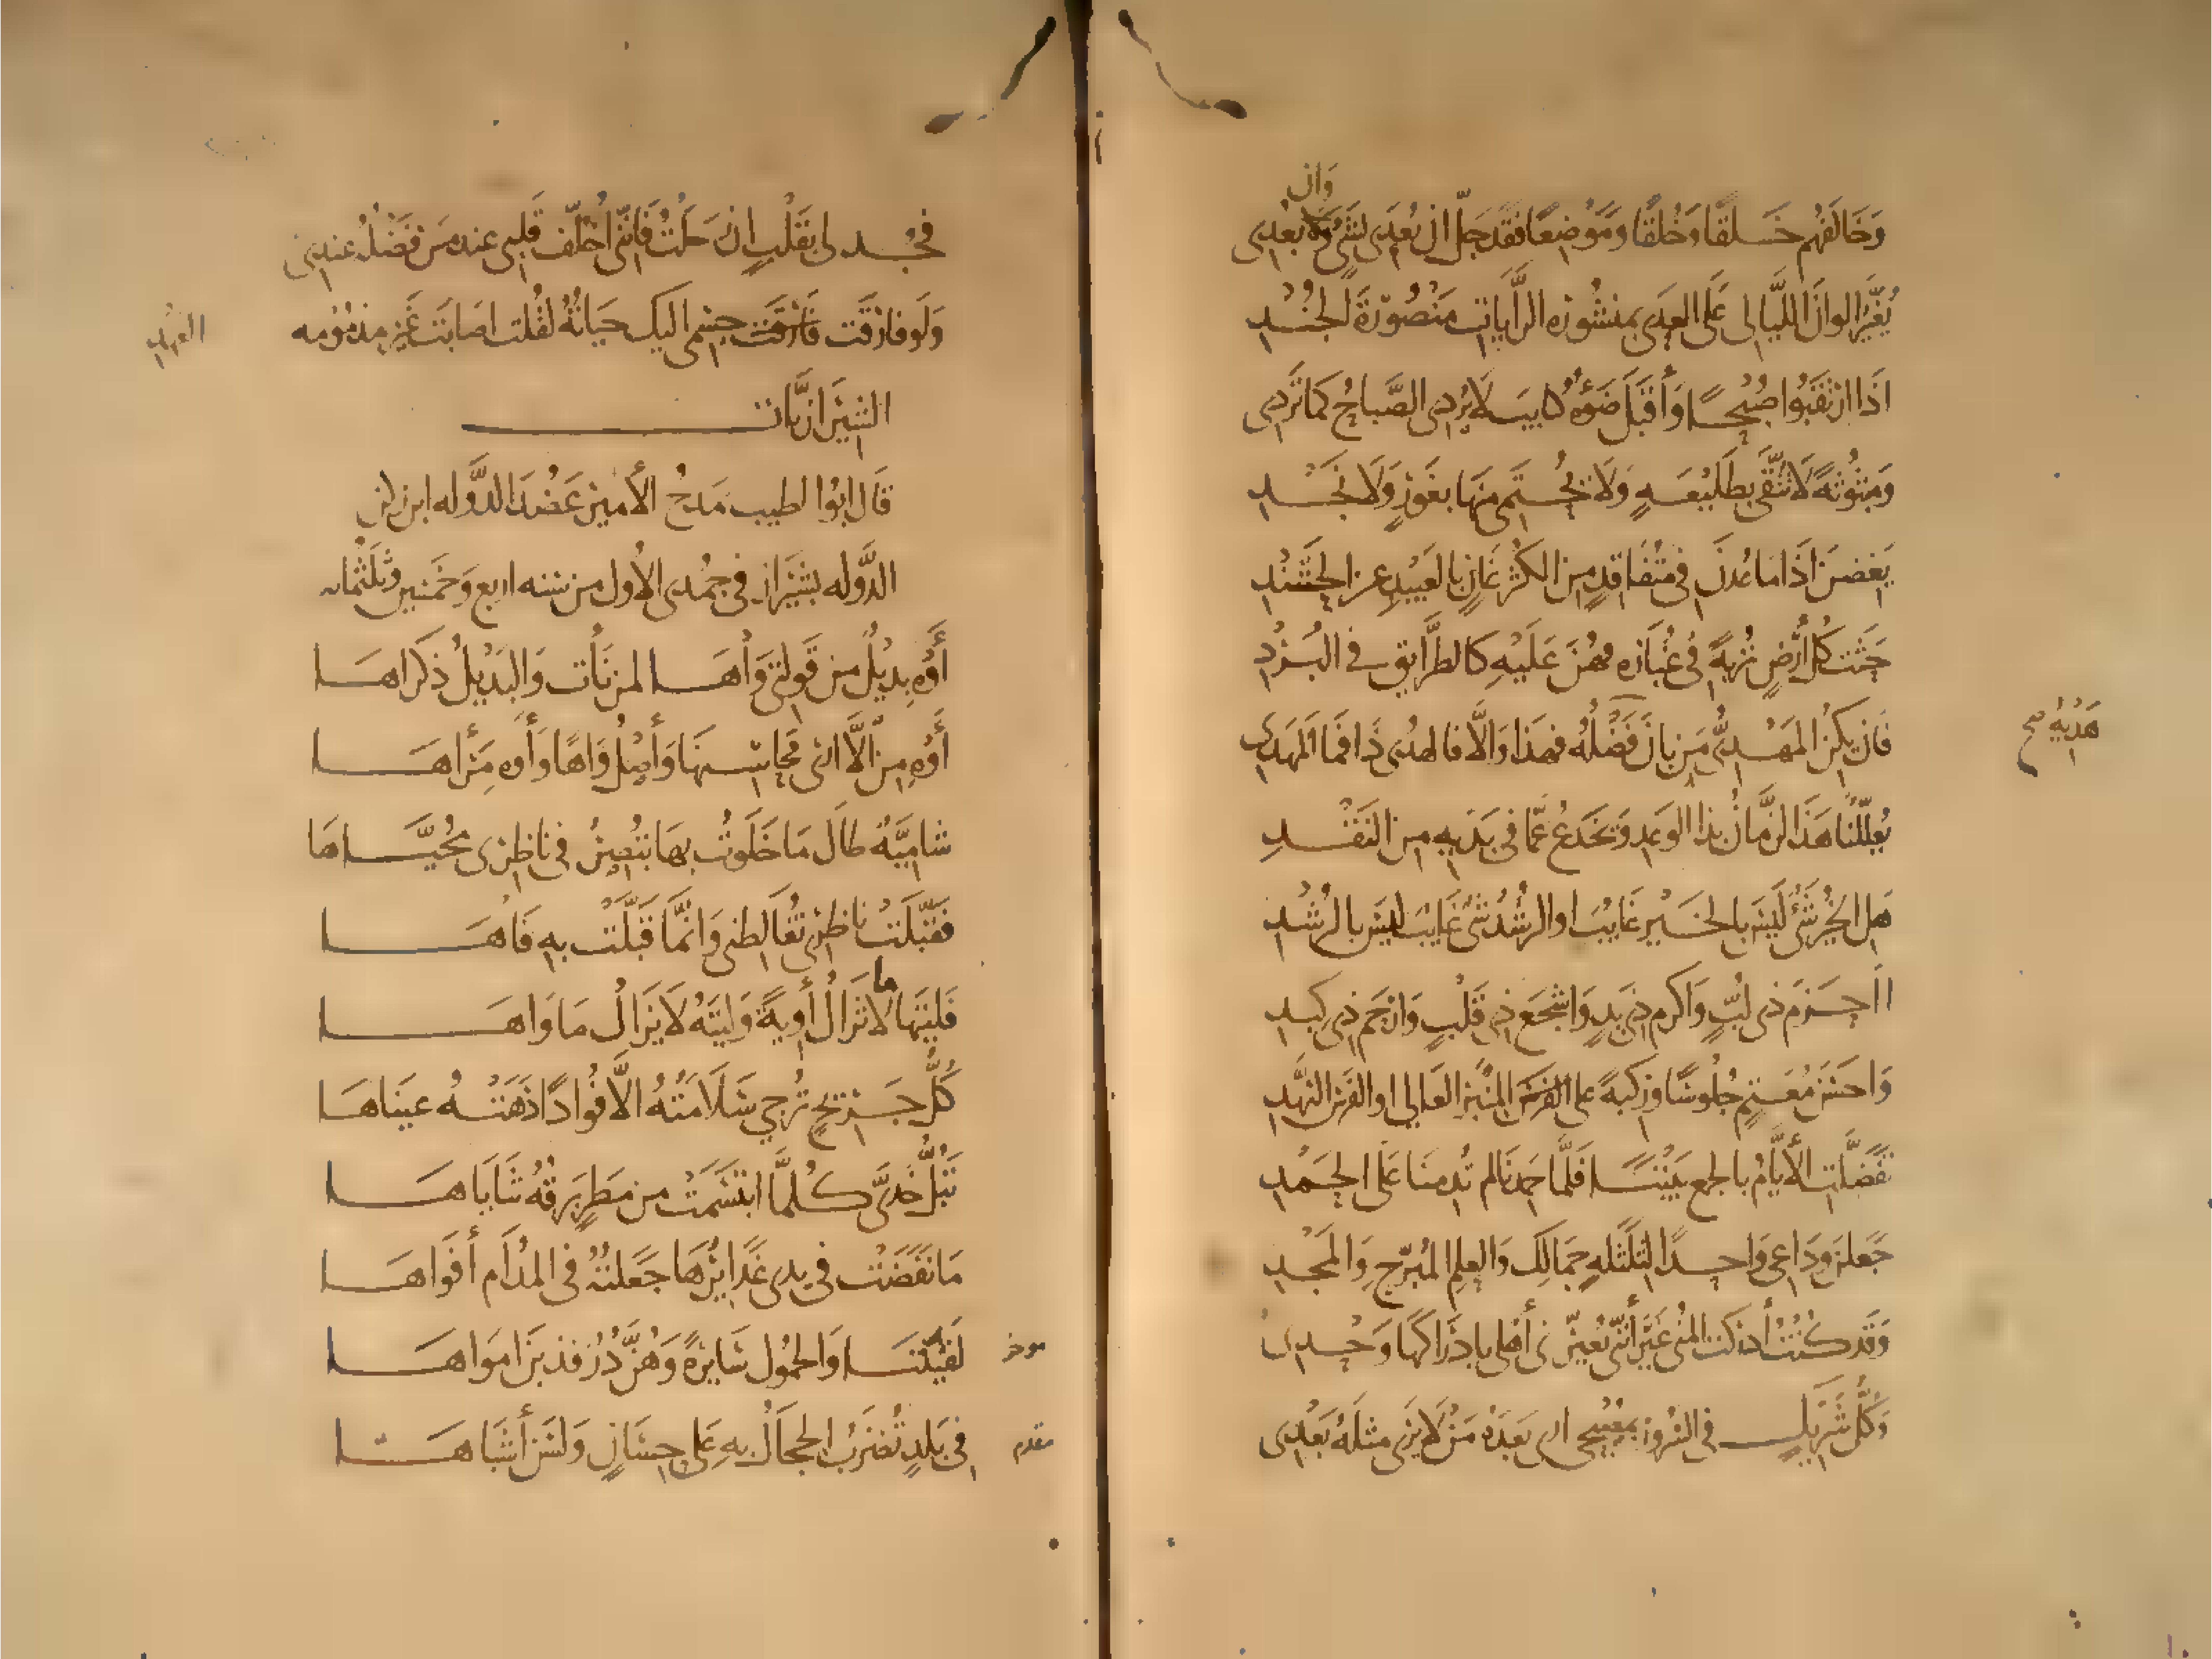 وَان
وَخَالَفَهُم خَلقًا وَخُلقًا وَمَوْضِعًا فقَد جَلّ ان يُعْدَى بشَىٍ وَلا يُعْدِى
يُغَيِّرُ الوانَ اللَّيَالِى عَلَى العِدَى بمنشُورَه الرَّايَاتِ مَنْصُورَةِ الجُنْدِ
اذَا ارْتَقَبُوا صُبْحًا وَأَقبَلَ ضَوْءُه كتايبَ لا يُردِى الصَّباحُ كمَا تَردِى
وَمبْثُوثةً لَا تُتَّقَى بطَلِيعَةٍ وَلَا يُحْتَمى منهَا بغَورٍ وَلَا نَجْدِ
يَغِضنَ اذَا مَا عُدنَ فى مُتَفَاقدٍ مِن الكُثر غَانٍ بالعَبِيدِ عن الحَشْدِ
حَثَت كُلُّ أَرْضٍ تُربَةً فى غُبَارِه فهُنَّ عَلَيْهِ كَالطَّرَايق فى البُرْدِ
فَان يَكُنِ المَهْدِىُّ مَن بَانَ هَدْيُهُ فهَذَا وَالَّا فَالهُدَى ذَا فمَا المَهدِى
هَدْيُهُ صح
يُعلّلنَا هَذَا الزَّمانُ بذا الوَعدِ وَيَخدَعُ عَمَّا فى يَدَيهِ مِن النَقْدِ
هَل الخَيرُ شَىٌ لَيسَ بالخَيْرِ غَايبٌ او الرشدُ شىٌ غَايبٌ لَيسَ بالرُشْدِ
ااَحزَمَ ذِى لبٍّ وَاكرمَ ذِى يَدٍ وَاشجَعَ ذِى قَلْبٍ وَارْحَمَ ذِى كبدِ
وَاحسَنَ مُعتَمٍّ جُلُوسًا وَرِكبةً على المِنبَر العَالى او الفَرَس النَّهْدِ
تَفَضَّلَتِ الأَيَّامُ بالجمعِ بَيْنَنَا فَلَمَّا حَمِدنَا لم تُدِمنَا عَلَى الحَمْدِ
جَعَلنَ وَدَاعِى وَاحدًا لثَلَثَةٍ جَمَالِكَ وَالعِلمِ المُبَرِّحِ وَالمَجْدِ
وَقَد كُنْتُ أَدرَكتُ المُنَى غَيرَ أَنَّنى يُعَيّرُنى أَهْلى بادرَاكهَا وَحْدِى
وَكُلُّ شَرِيكٍ فى السُّرُورِ بمُصْبَحِى ارى بَعدَهُ مَن لَا يَرَى مثلَهُ بَعْدِى
فَجُد لى بقَلْبٍ ان رَحَلْتُ فَانَّنى اُخَلِّف قَلبِى عند مَن فَضْلُهُ عندِى
وَلَو فارَقَت جِسْمى اليكَ حَيَاتُهُ لقُلتُ اصَابَت غَيرَ مذمُومه
العهدِ
الشِيرَازيَّات
قَال ابُوا لطيب مَدحُ الأَمير عَضُدَ الدَّوله ابن ركن
الدَّوله بشِيرَاز فى جمُدى الأول من سَنه اربع وَخمَسين وَثلَثمُايه
أَوْهِ بَدِيْلٌ مِن قَولَتى وَاْهَا لمن نَأَت وَالبَدِيْلُ ذِكرَاهَا
أَوْهِ مِن الَّا ارَى مَحَاسِنَهَا وَأَصْلُ وَاهًا وَأَوهِ مَرْأَاهَا
شَامِيَّةٌ طَالَ مَا خَلَوتُ بهَا تُبْصِرُ فى نَاظِرِى مُحَيَّاهَا
فَقَبَّلَتْ نَاظِرِى تُغَالِطنى وَانَّمَا قَبَّلَتْ بهِ فَاهَا
فَلَيتَهَا لا تَزَالُ أَوِيةً وَلَيتَهُ لَا يَزَالُ مَاوَاهَا
ما
كُلُّ جَرِيحٍ تُرجَى سَلَامَتُهُ الَّا فُوادًا دَهَتْهُ عينَاهَا
تَبُلُّ خدَّىَّ كُلمَّا ابتَسَمَتْ من مَطَرٍ بَرقُهُ ثَنَايَاهَا
مَا نَفَضَتْ فى يدِى غَدَايرُهَا جَعَلتُهُ فى المُدَام أَفوَاهَا
لَقينَنَا وَالحمُول سَايرَةً وَهُنَّ دُرٌّ فَذبْنَ امَوَاهَا
موخر
فى بَلدٍ تُضرَبُ الحجَالُ بهِ عَلى حِسَانٍ وَلَسْنَ أَشْبَاهَا
مقدم